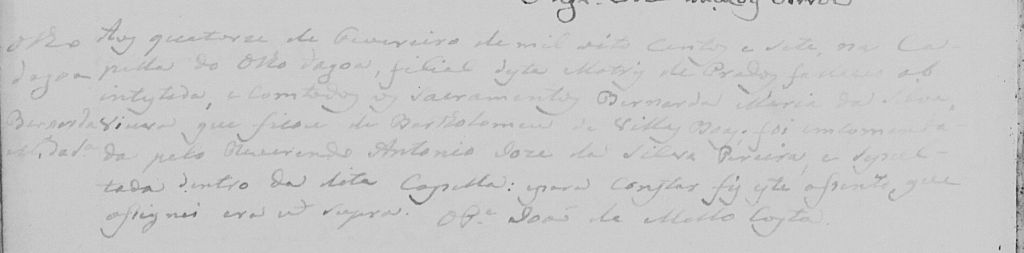 Olho Aos quatorze de Fevereiro de mil oito Centos e sete, na Ca-
dagoa pella do Olho dagoa, filial desta Matriz de Prados faleceo ab
intestada, e com todos os Sacramentos Bernarda Maria da Silva,
Bernarda Viuva que ficou de Bartholomeu de Villas Boas. foi emcomenda-
da pelo Reverendo Antonio Joze da Silva Pereira, e sepul-
tada dentro da dita Capella: e para Constar fiz este assento, que
assignei era ut supra. João de Mello Costa.